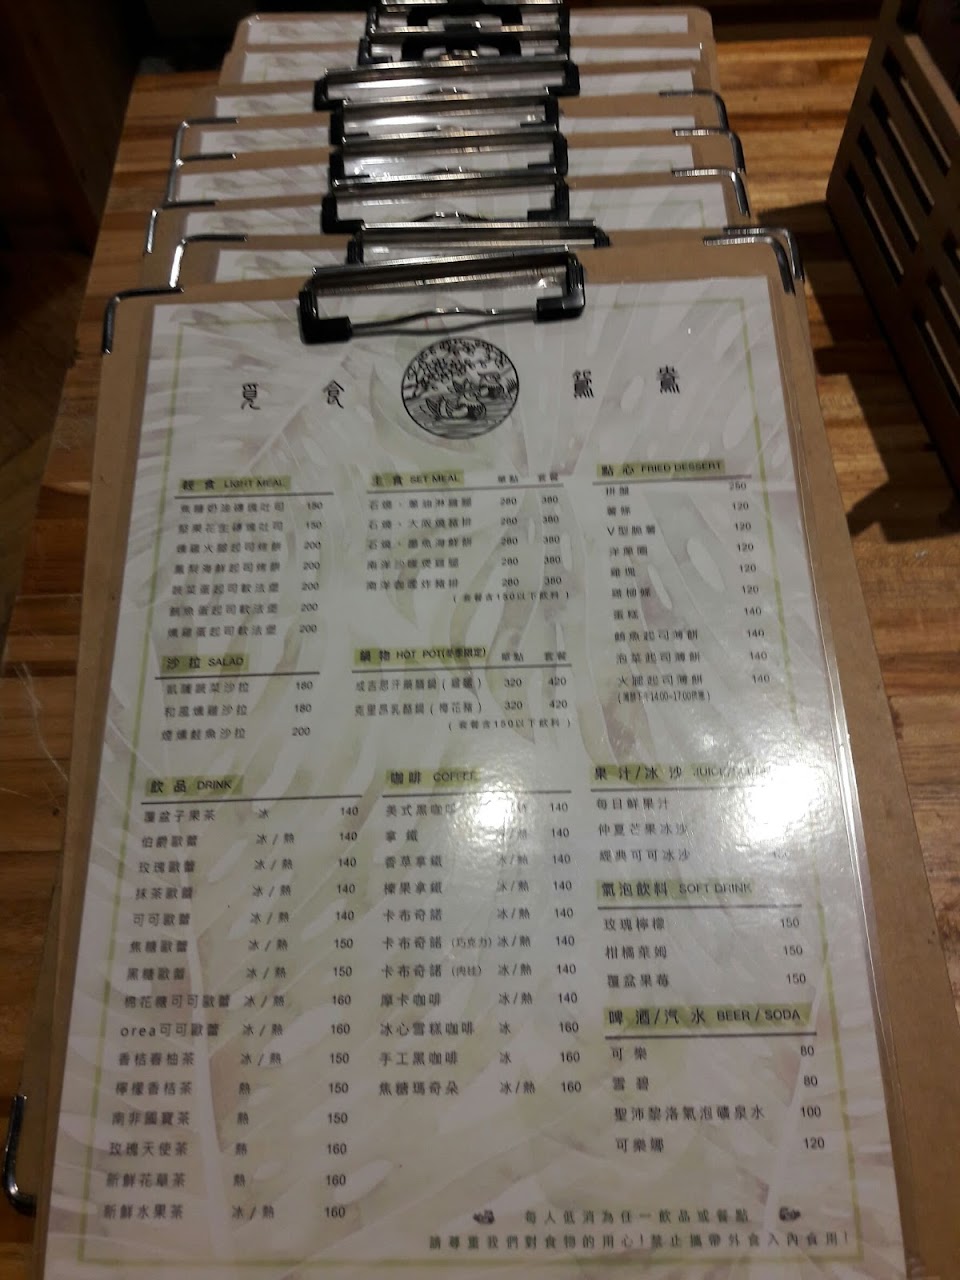 覓食 鴛鴦
輕食 LIGHT MEAL
焦糖奶油磚塊吐司 180
堅果花生磚塊吐司 150
燻雞火腿起司烤餅 200
鳳梨海鮮起司烤餅 200
蔬菜蛋起司軟法堡 200
鮪魚蛋起司軟法堡 200
燻雞蛋起司軟法堡 200
沙拉 SALAD
凱薩蔬菜沙拉 180
和風燻雞沙拉 180
煙燻鮭魚沙拉 200
主食 SET MEAL 單點 套餐
石燒、蔥油淋雞腿 280 380
石燒、大阪燒豬排 280 380
石燒、墨魚海鮮餅 280 380
南洋沙嗲煲雞腿 280 380
南洋咖哩炸豬排 280 380
(套餐含150以下飲料)
鍋物 HOT POT(冬季限定) 單點 套餐
成吉思汗藥膳鍋(雞腿) 320 420
克里昂乳酪鍋(梅花豬) 320 420
(套餐含150以下飲料)
點心 FRIED DESSERT
拼盤 250
薯條 120
V型脆薯 120
洋蔥圈 120
雞塊 120
雞柳條 120
蛋糕 140
鮪魚起司薄餅 140
泡菜起司薄餅 140
火腿起司薄餅 140
(薄餅下午14:00~17:00供應)
飲品 DRINK
覆盆子果茶 冰 140
伯爵歐蕾 冰/熱 140
玫瑰歐蕾 冰/熱 140
抹茶歐蕾 冰/熱 140
可可歐蕾 冰/熱 140
焦糖歐蕾 冰/熱 150
黑糖歐蕾 冰/熱 150
棉花糖可可歐蕾 冰/熱 160
orea可可歐蕾 冰/熱 160
香桔香柚茶 冰/熱 150
檸檬香桔茶 熱 150
南非國寶茶 熱 150
玫瑰天使茶 熱 160
新鮮花草茶 熱 160
新鮮水果茶 冰/熱 160
咖啡 COFFEE
美式黑咖啡 熱 140
拿鐵 冰/熱 140
香草拿鐵 冰/熱 140
榛果拿鐵 冰/熱 140
卡布奇諾 冰/熱 140
卡布奇諾(巧克力) 冰/熱 140
卡布奇諾(肉桂) 冰/熱 140
摩卡咖啡 冰/熱 140
冰心雪糕咖啡 冰 160
手工黑咖啡 冰 160
焦糖瑪奇朵 冰/熱 160
果汁/冰沙 JUICE/
每日鮮果汁
仲夏芒果冰沙
經典可可冰沙
氣泡飲料 SOFT DRINK
玫瑰檸檬 150
柑橘萊姆 150
覆盆果莓 150
啤酒/汽水 BEER / SODA
可樂 80
雪碧 80
聖沛黎洛氣泡礦泉水 100
可樂娜 120
每人低消為任一飲品或餐點
請尊重我們對食物的用心!禁止攜帶外食入內食用!